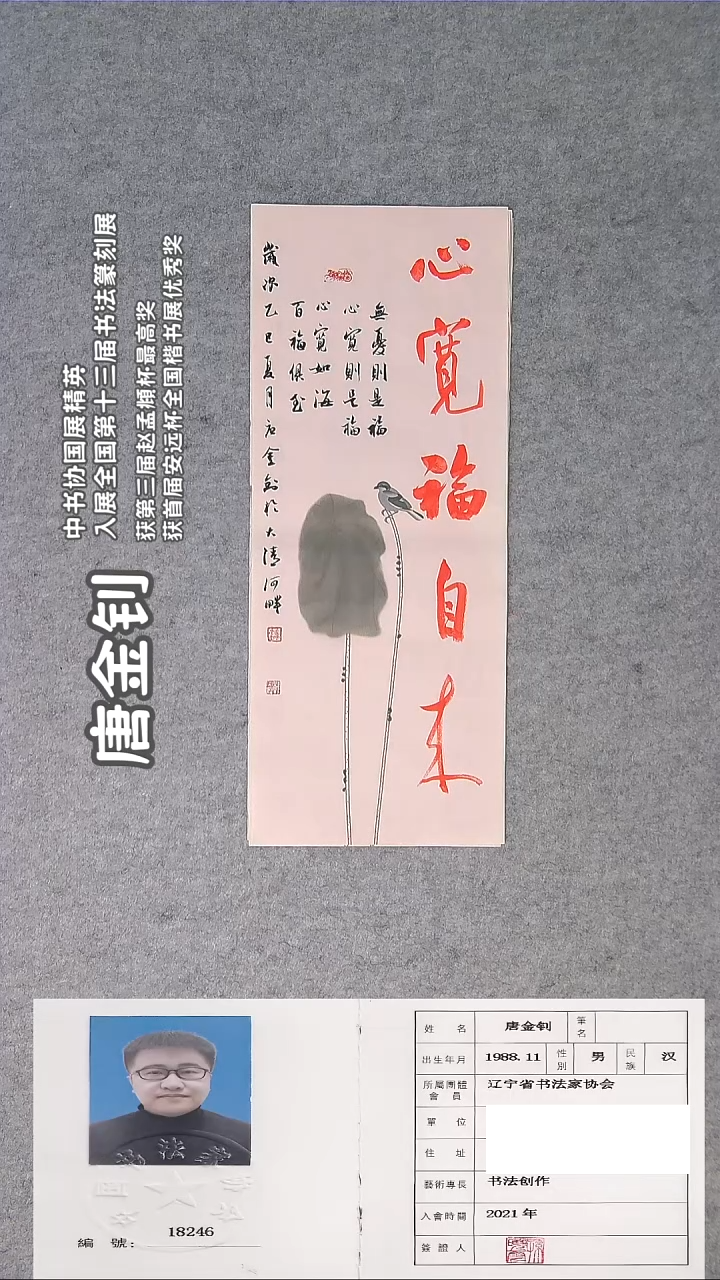 心寬福自来
無憂則是福
心寬則是福
心寬如海
百福俱至
歲次乙巳夏月唐金釗於大清河畔
中书协国展精英
入展全国第十三届书法篆刻展
获第三届赵孟頫杯最高奖
获首届安远杯全国楷书展优秀奖
唐金钊
編 號: 18246
姓 名 唐金钊 筆名
出生年月 1988.11 性別 男 民族 汉
所屬團體會員 辽宁省书法家协会
單 位
住 址
藝術專長 书法创作
入會時間 2021 年
簽證人